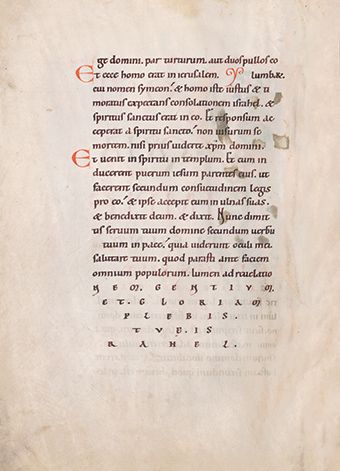 ge domini. par turturum. aut duos pullos co
Et ecce homo erat in ierusalem. lumbae.
cui nomen symeon. & homo iste iustus & ti
moratus expectans consolationem israhel. &
spiritus sanctus erat in eo. Et responsum ac
ceperat a spiritu sancto. non uisurum se
mortem. nisi prius uideret xpm domini.
Et uenit in spiritu in templum. Et cum in
ducerent puerum iesum parentes eius. ut
facerent secundum consuetudinem legis
pro eo. & ipse accepit eum in ulnas suas.
& benedixit deum. & dixit. Nunc dimit
tis seruum tuum domine secundum uerbu
tuum in pace. quia uiderunt oculi mei
salutare tuum. quod parasti ante faciem
omnium populorum. lumen ad reuelatio
NEM. GENTIUM.
ET. GLORIAM
PLEBIS.
TUE. IS
RAHEL.